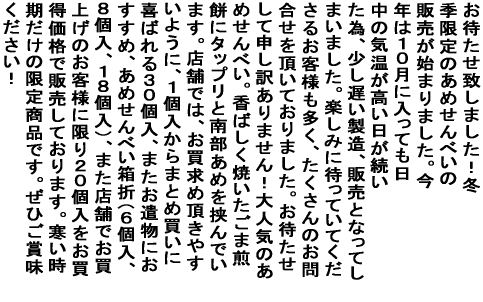 お待たせ致しました！冬
季限定のあめせんべいの
販売が始まりました。今
年は１０月に入っても日
中の気温が高い日が続い
た為、少し遅い製造、販売となってし
まいました。楽しみに待っていてくだ
さるお客様も多く、たくさんのお問
合せを頂いておりました。お待たせ
して申し訳ありません！大人気のあ
めせんべい。香ばしく焼いたごま煎
餅にタップリと南部あめを挟んでい
ます。店舗では、お買求め頂きやす
いように、１個入からまとめ買いに
喜ばれる３０個入、またお遣物にお
すすめ、あめせんべい箱折（６個入、
８個入、１８個入）、また店舗でお買
上げのお客様に限り２０個入をお買
得価格で販売しております。寒い時
期だけの限定商品です。ぜひご賞味
ください！